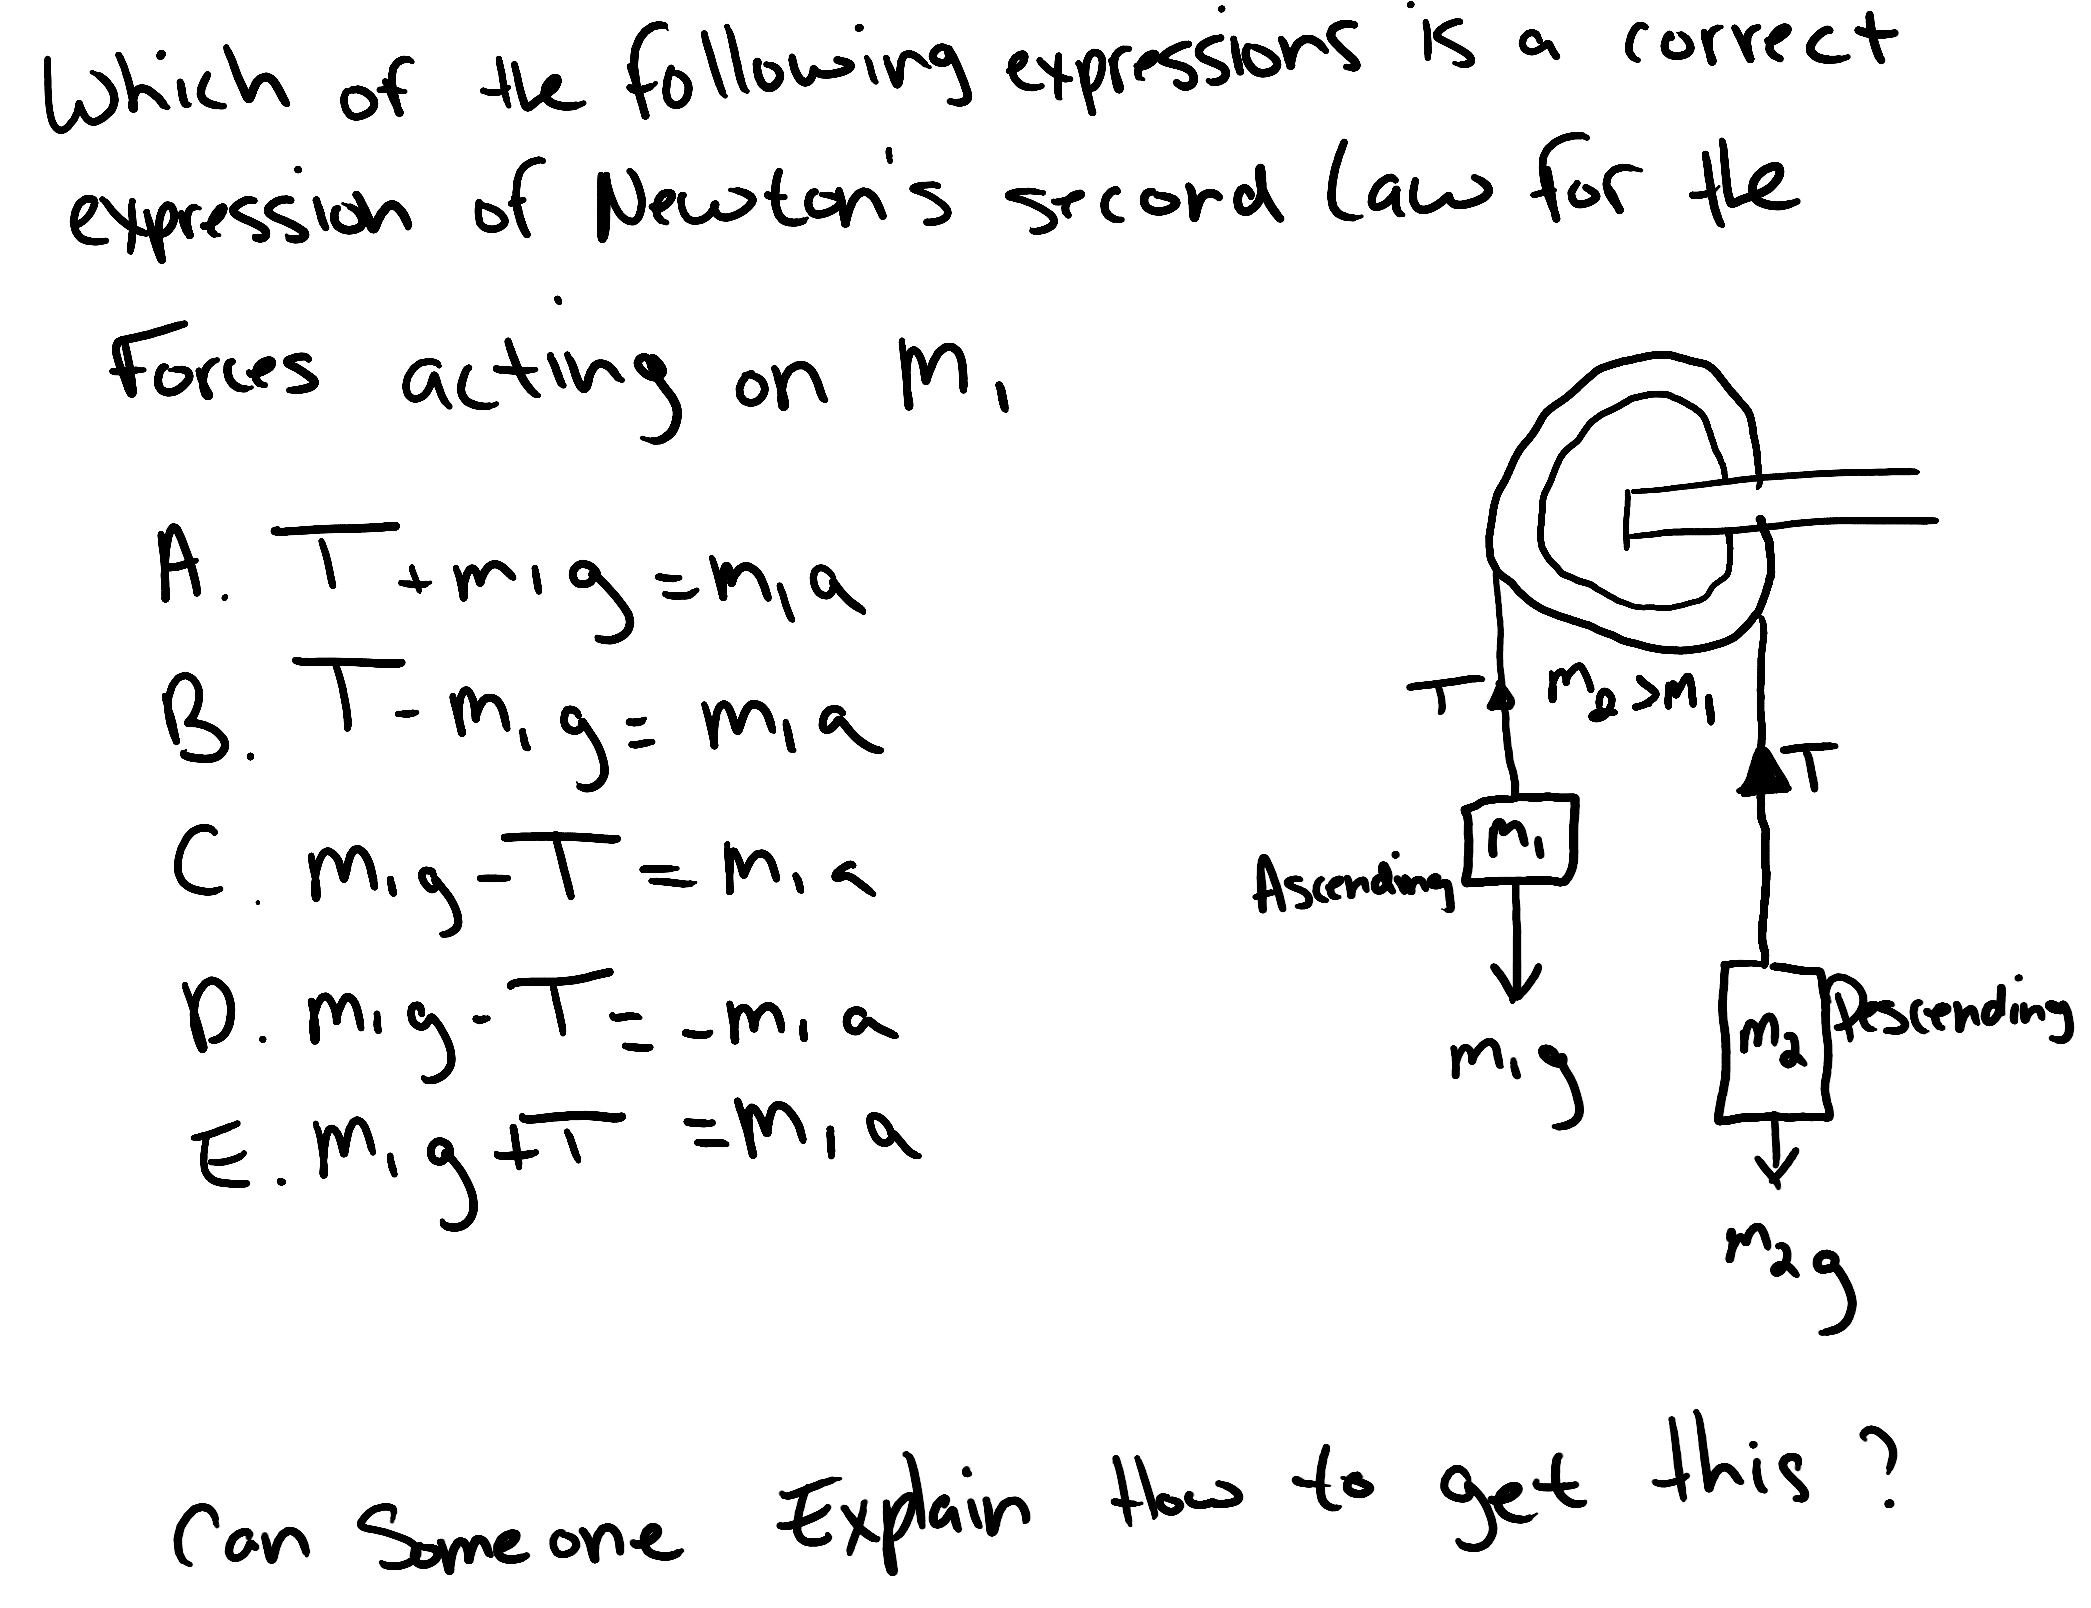 Which of the following expressions is a correct
expression of Newton's second law for the
Forces acting on m₁
A. T + m₁g = m₁a
B. T - m₁g = m₁a
C. m₁g - T = m₁a
D. m₁g - T = -m₁a
E. m₁g + T = m₁a
T
m₂ > m₁
T
m₁
Ascending
m₂
Descending
m₁g
m₂g
Can Someone Explain How to get this?